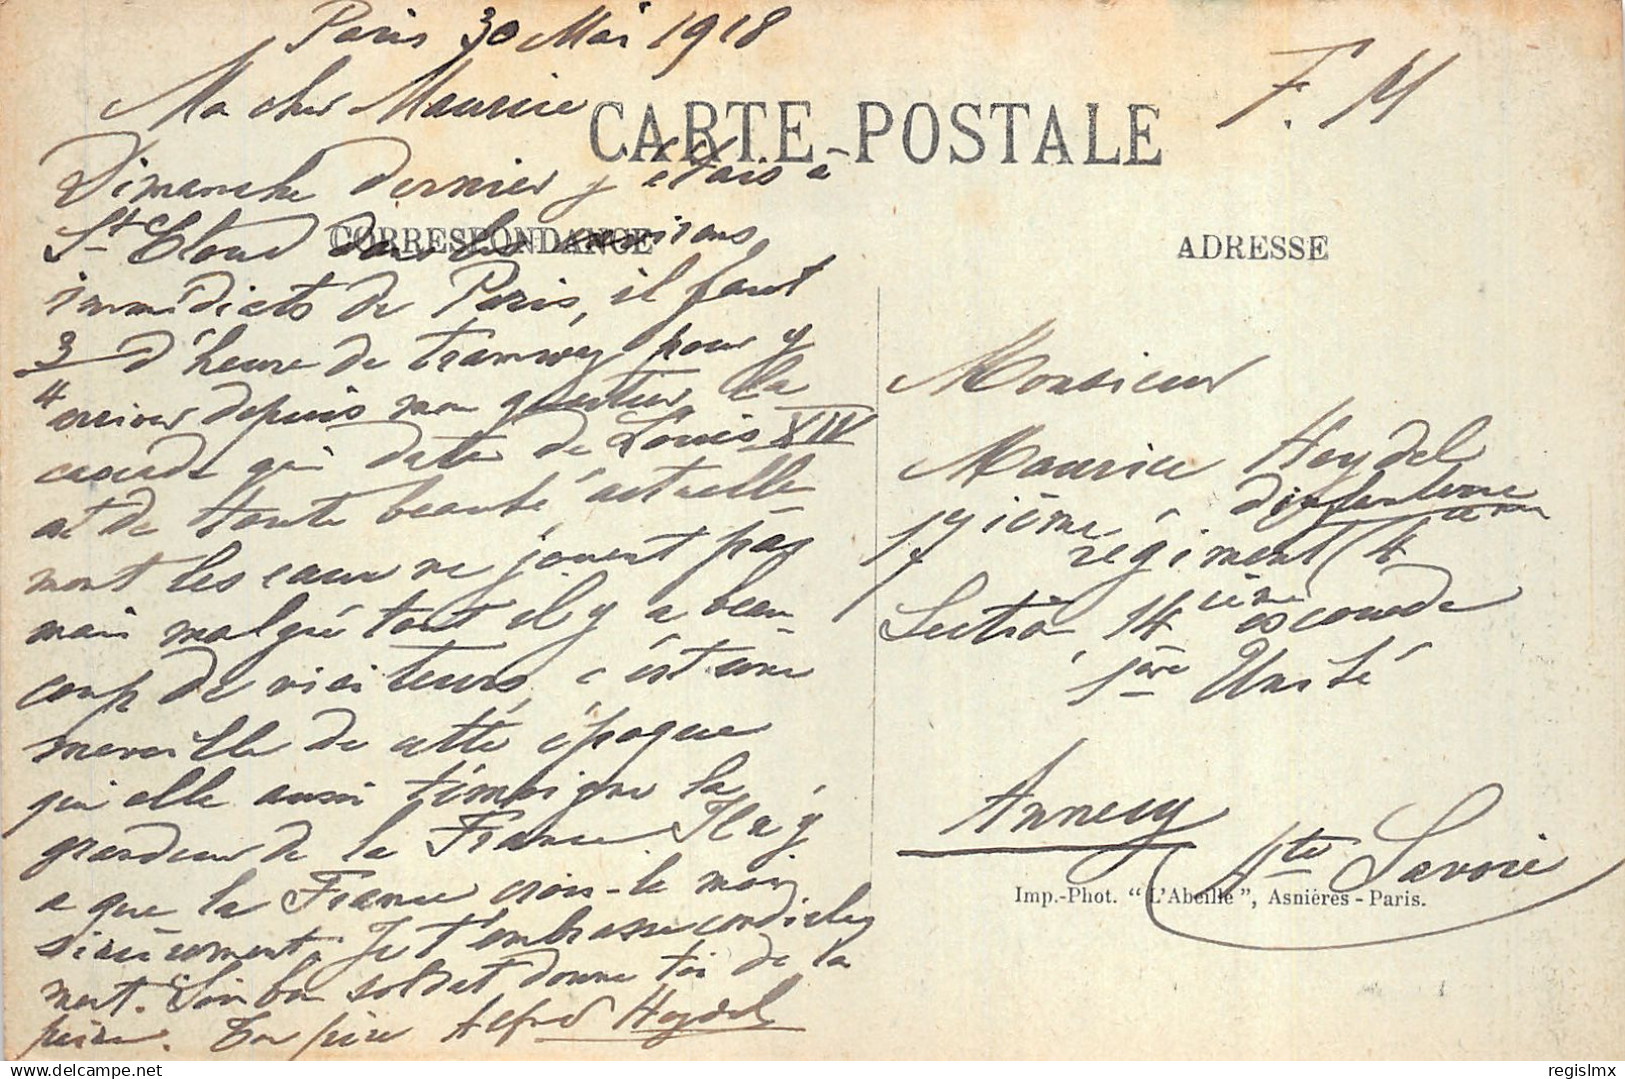 Paris 30 Mai 1918
Mo cher Maurice
Dimanche dernier j'étais à
St Cloud dans les environs
immédiats de Paris, il faut
3/4 d'heure de tramway pour y
arriver depuis mon quartier la
cascade qui date de Louis XIV
et de toute beauté actuelle
ment les eaux ne jouent pas
mais malgré tout il y a beau
coup de visiteurs, c'est une
merveille de cette époque
qui elle aussi témoigne la
grandeur de la France Il n'y
a que la France crois-le moi
sincèrement. Je t'embrasse cordiale
ment. Sois bon soldat donne toi de la
peine. Ton père Alfred Heydel
CARTE POSTALE
CORRESPONDANCE
F. M
ADRESSE
Monsieur
Maurice Heydel
d'infanterie
ième régiment 4
Section, 14 ième escouade
1ère Unité
Annecy
Hte Savoie
Imp.-Phot. "L'Abeille", Asnières - Paris.
regislmx